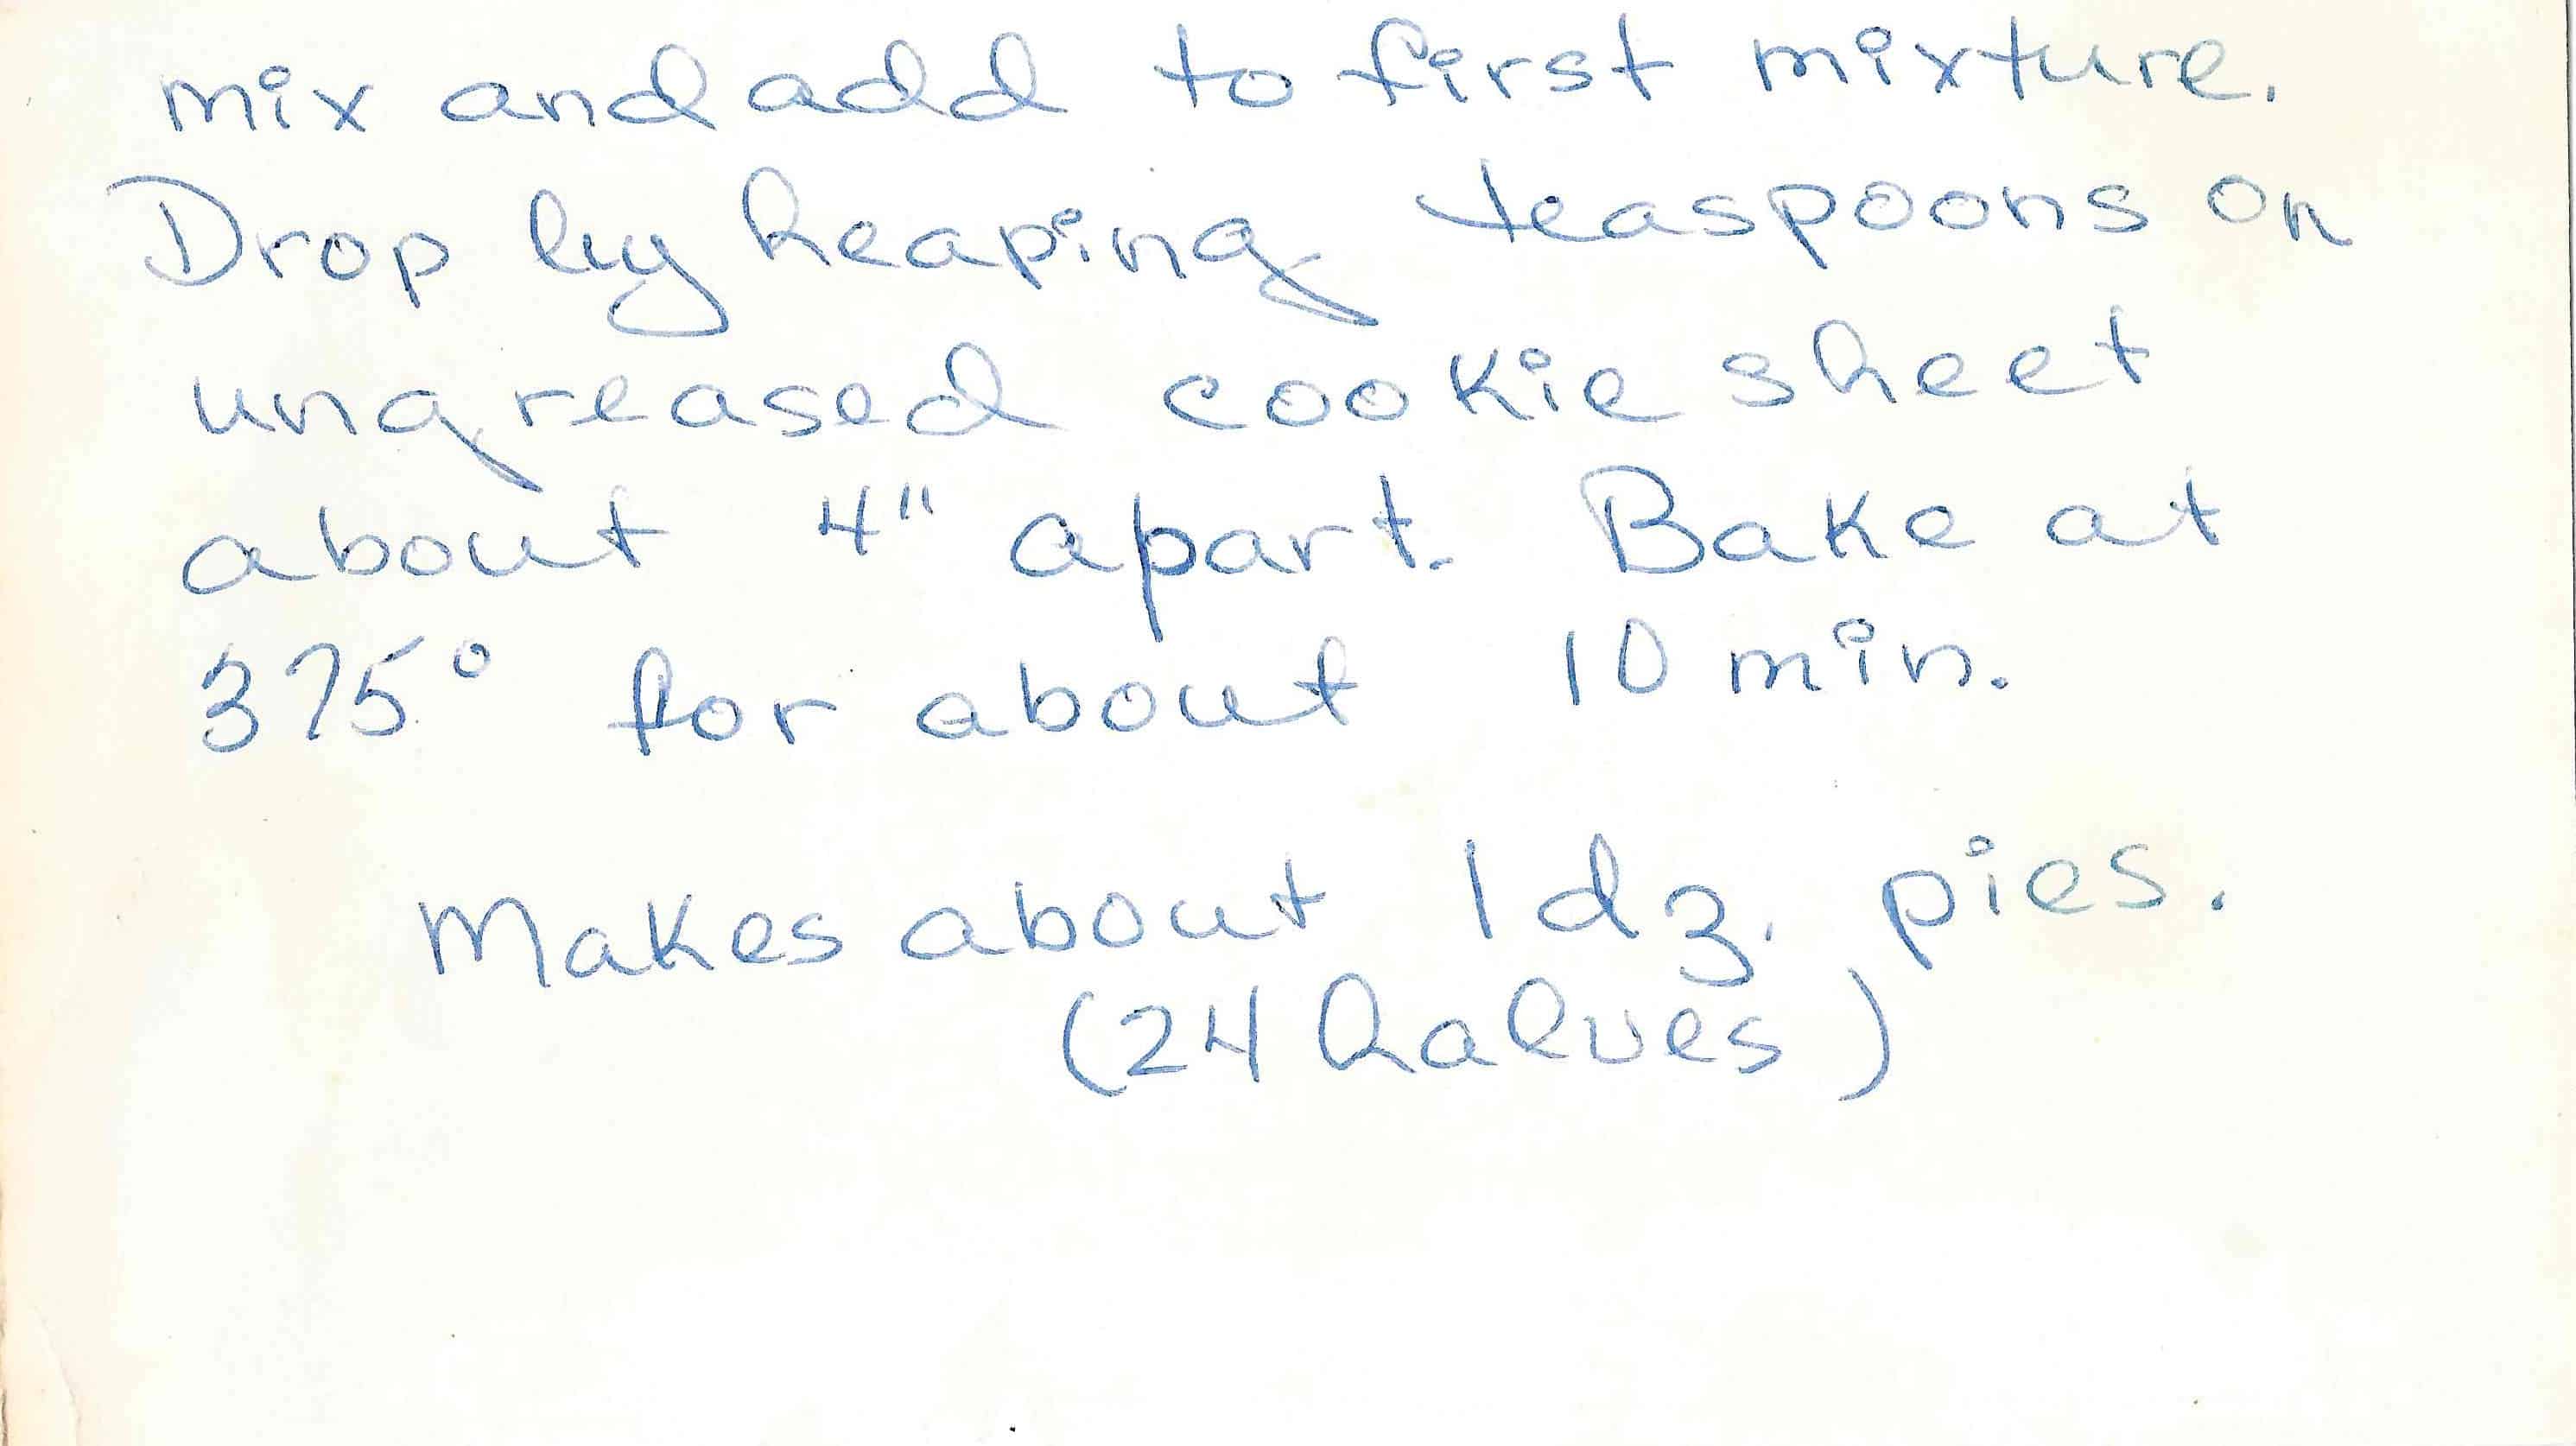 mix and add to first mixture.
Drop by heaping teaspoons on
ungreased cookie sheet
about 4" apart. Bake at
375° for about 10 min.
Makes about 1 dz. pies.
(24 halves)